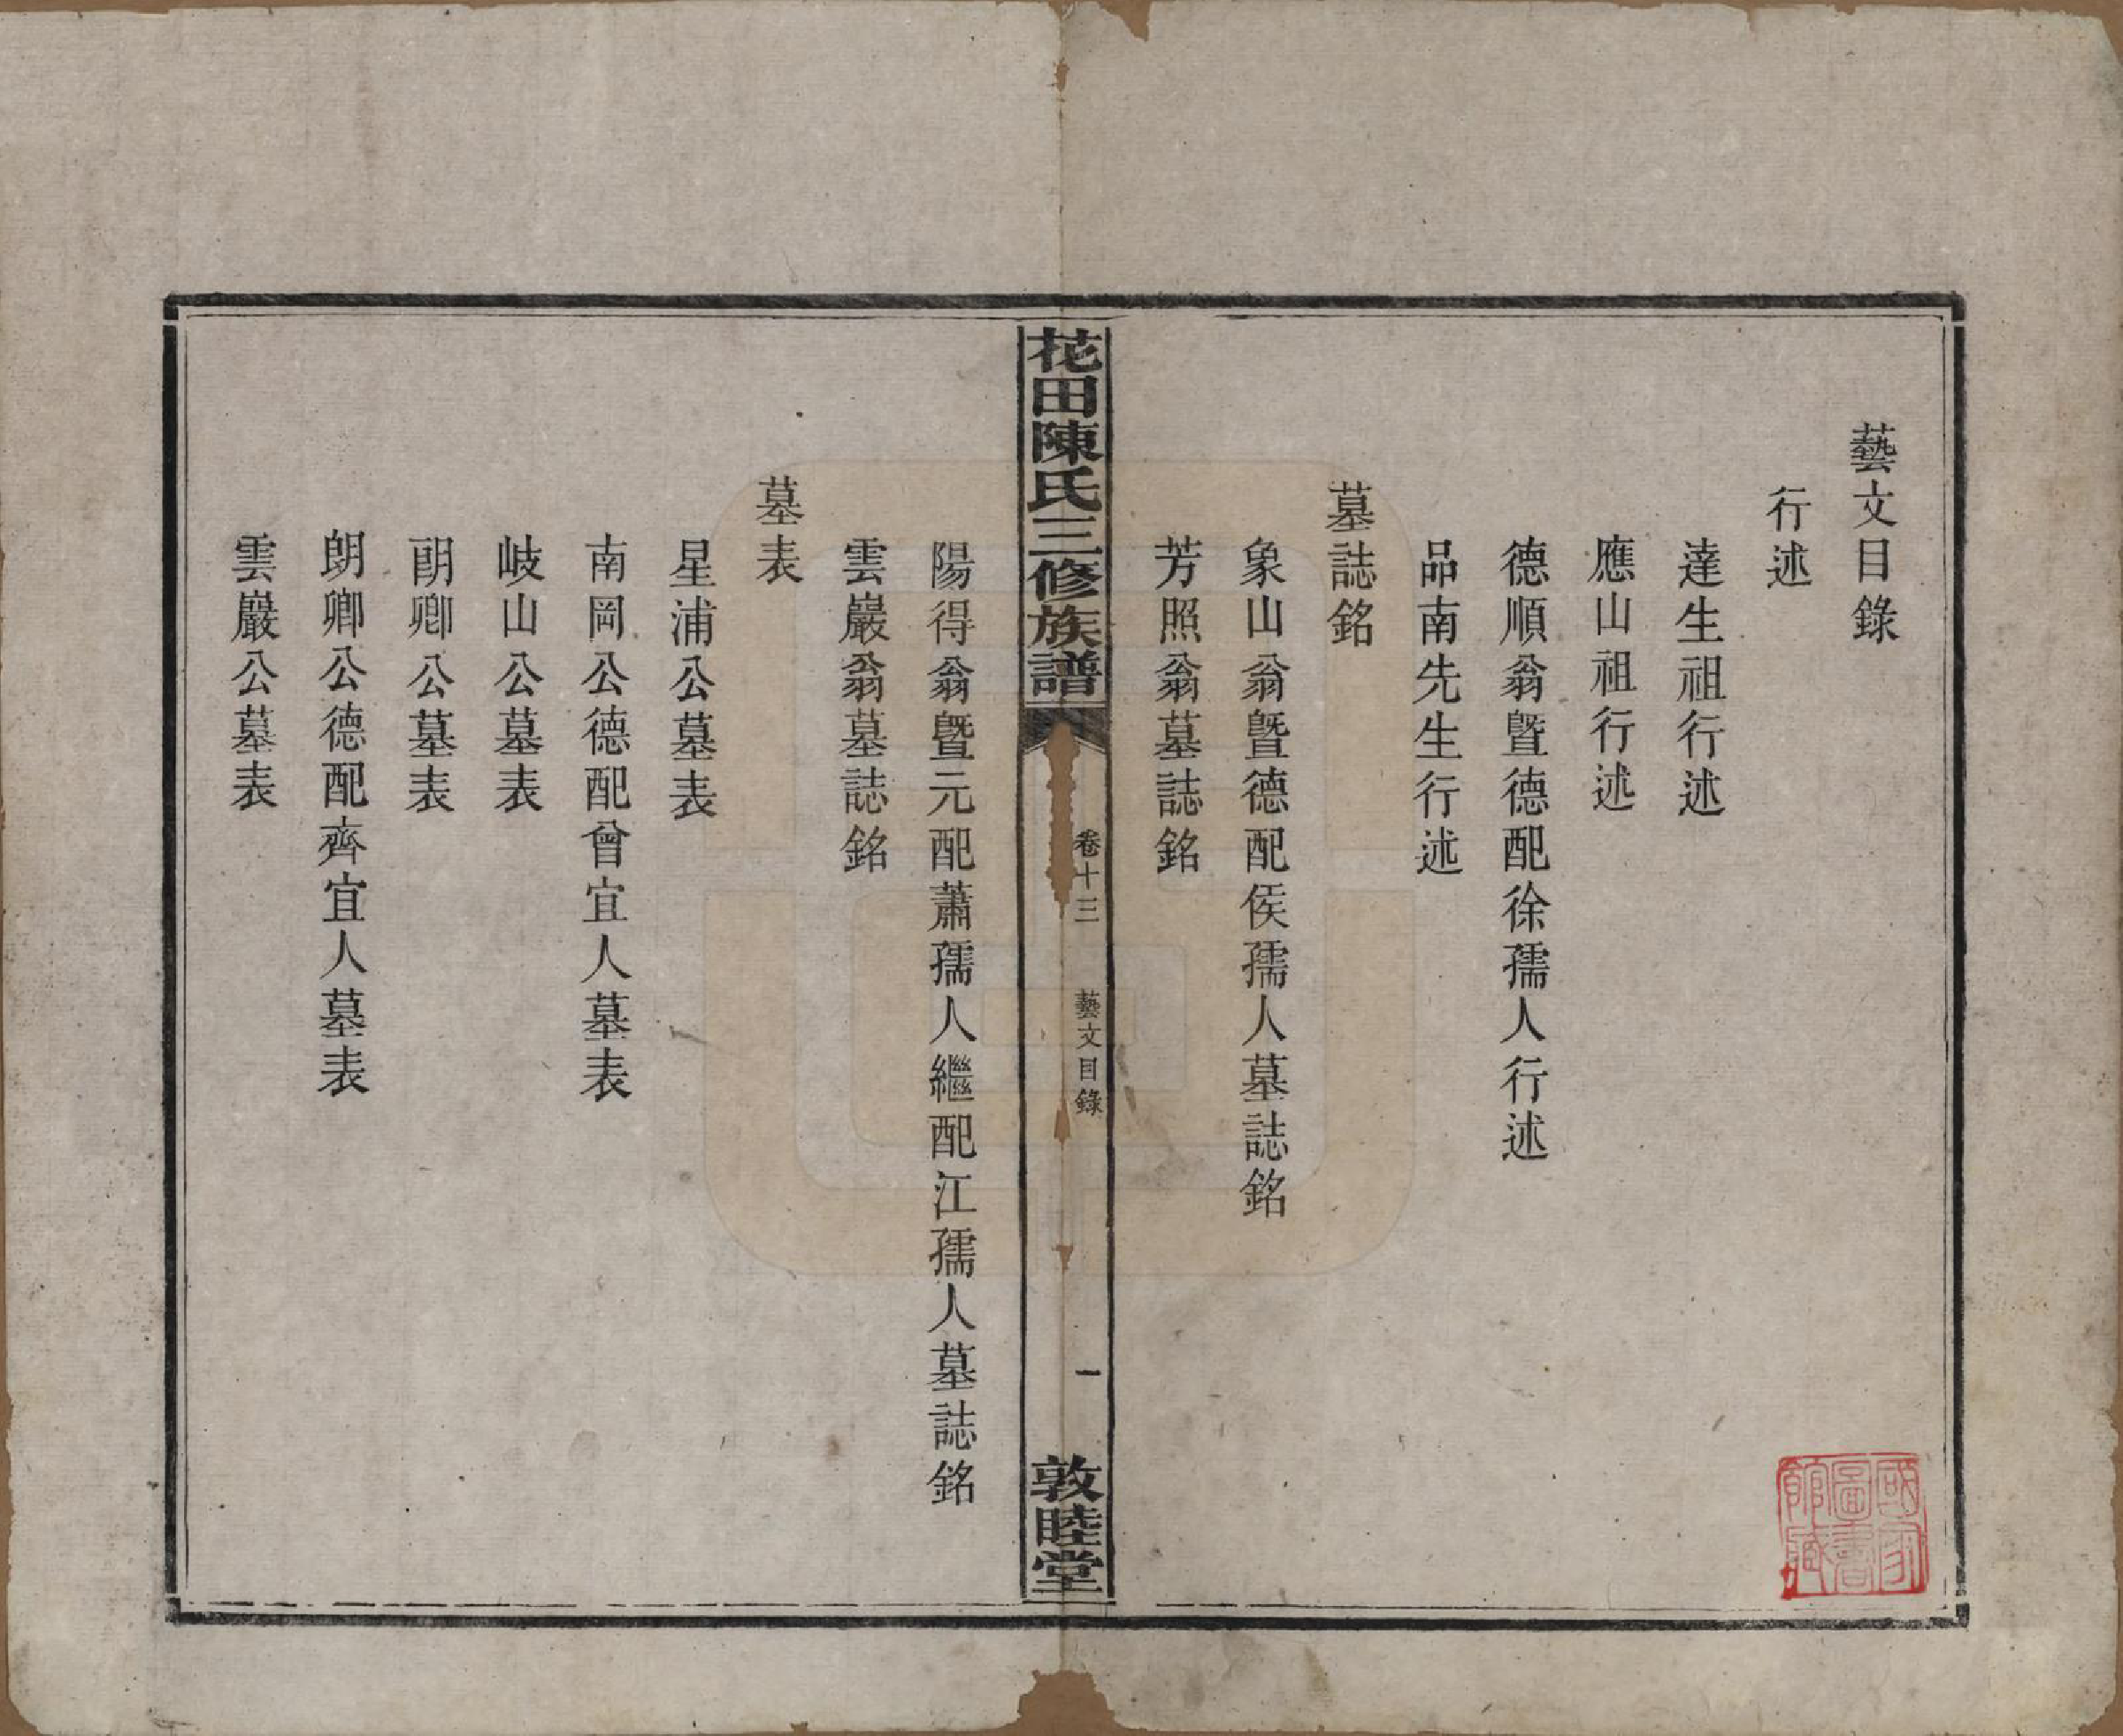 藝文目錄
行述
達生祖行述
應山祖行述
德順翁暨德配徐孺人行述
品南先生行述
墓誌銘
象山翁暨德配侯孺人墓誌銘
芳照翁墓誌銘
花田陳氏三修族譜
卷十三
藝文目錄
一
敦睦堂
陽得翁暨元配蕭孺人繼配江孺人墓誌銘
雲巖翁墓誌銘
墓表
星浦公墓表
南岡公德配曾宜人墓表
岐山公墓表
朗卿公墓表
朗卿公德配齊宜人墓表
雲巖公墓表
國家圖書館藏